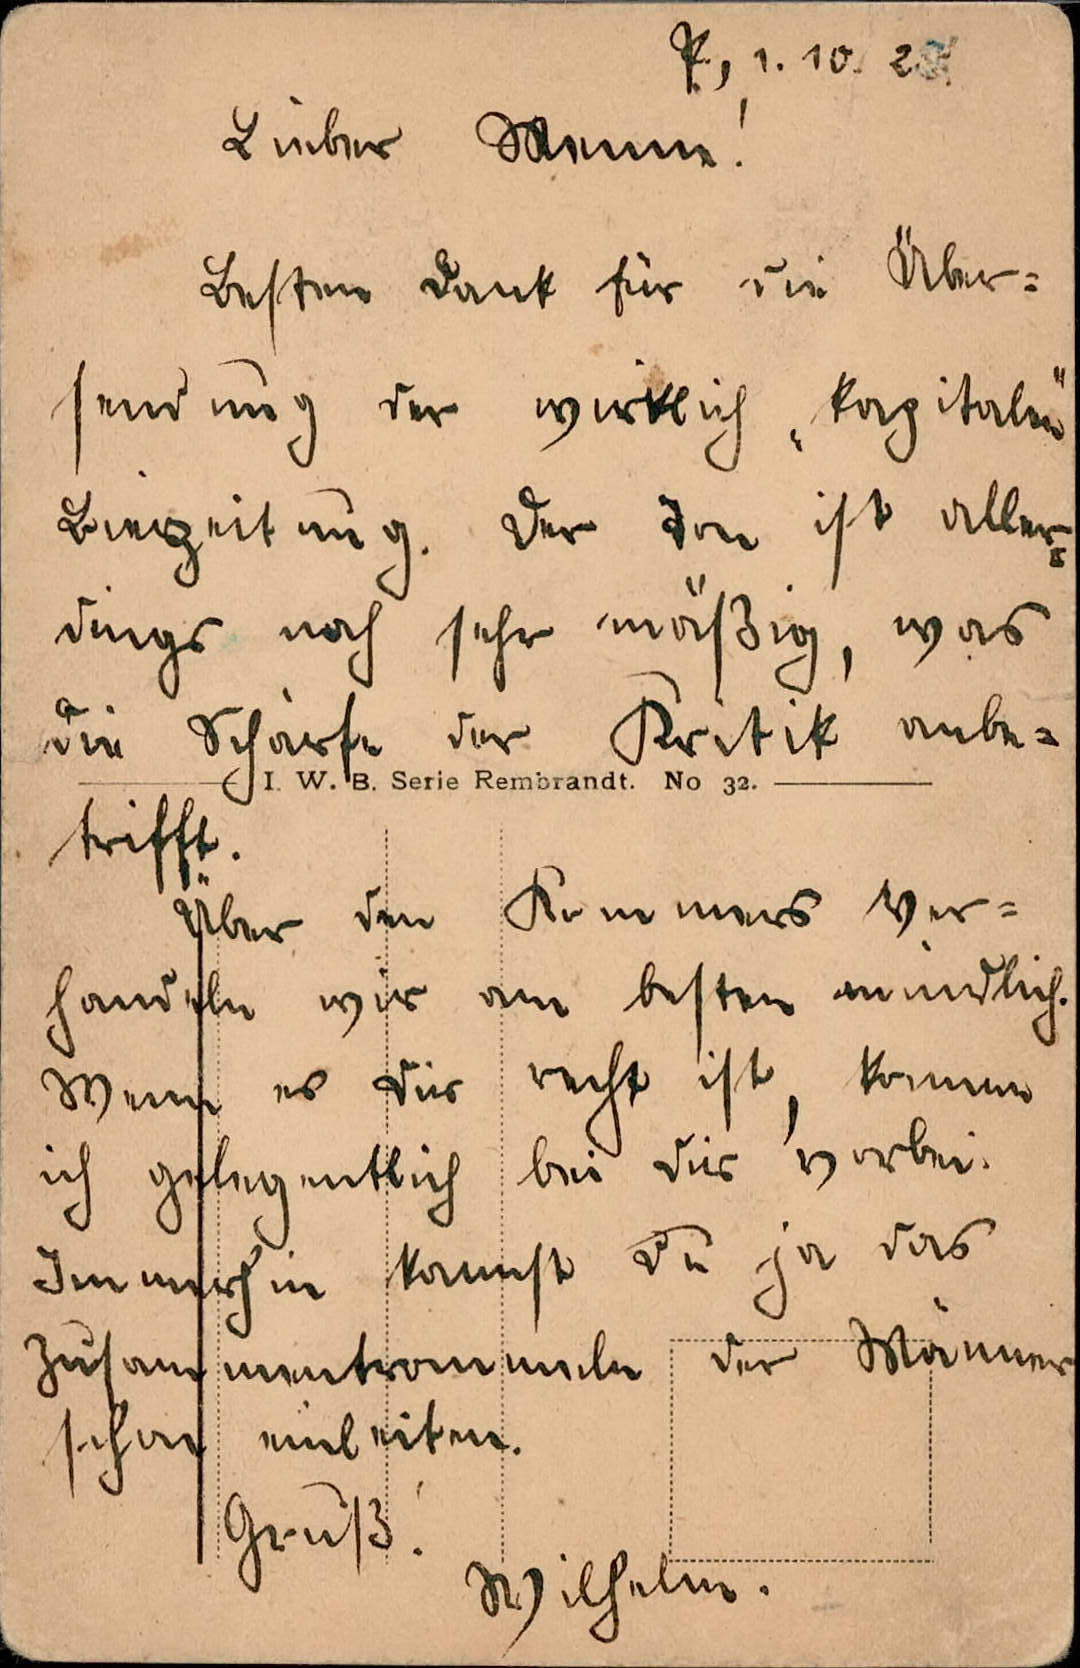 P., 1. 10. 25.
Lieber Menne!
Besten Dank für die Über=
sendung der wirklich „kapitalen"
Bierzeitung. Der Ton ist aller=
dings noch sehr mäßig, was
die Schärfe der Kritik anbe=
I. W. B. Serie Rembrandt. No 32.
trifft.
Über den Kommers ver=
handeln wir am besten mündlich.
Wenn es Dir recht ist, komme
ich gelegentlich bei Dir vorbei.
Immerhin kannst Du ja das
Zusammentrommeln der Männer
schon einleiten.
Gruß!
Wilhelm.